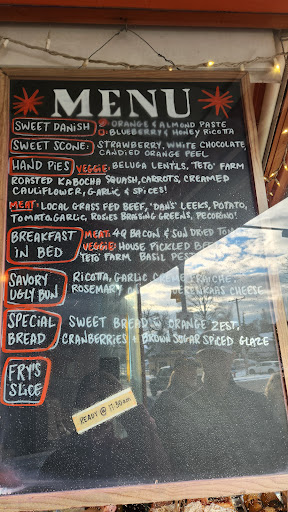 MENU
SWEET DANISH ORANGE & ALMOND PASTE
BLUEBERRY & HONEY RICOTTA
SWEET SCONE: STRAWBERRY, WHITE CHOCOLATE
CANDIED ORANGE PEEL
HAND PIES VEGGIE: BELUGA LENTILS, TETO' FARM
ROASTED KABOCHA SQUASH, CARROTS, CREAMED
CAULIFLOWER, GARLIC & SPICES!
MEAT: LOCAL GRASS FED BEEF, "DAN'S" LEEKS, POTATO,
TOMATO, GARLIC, ROSIES BRAISING GREENS, PECORINO!
BREAKFAST IN BED MEAT: 4Q BACON & SUN DRIED
VEGGIE: HOUSE PICKLED
TETO FARM BASIL
SAVORY UGLY BUN RICOTTA, GARLIC CRÈME FRAICHE,
ROSEMARY CHEESE
SPECIAL BREAD SWEET BREAD W/ ORANGE ZEST,
CRANBERRIES & BROWN SUGAR SPICED GLAZE
FRY'S SLICE
READY @ 11:30AM